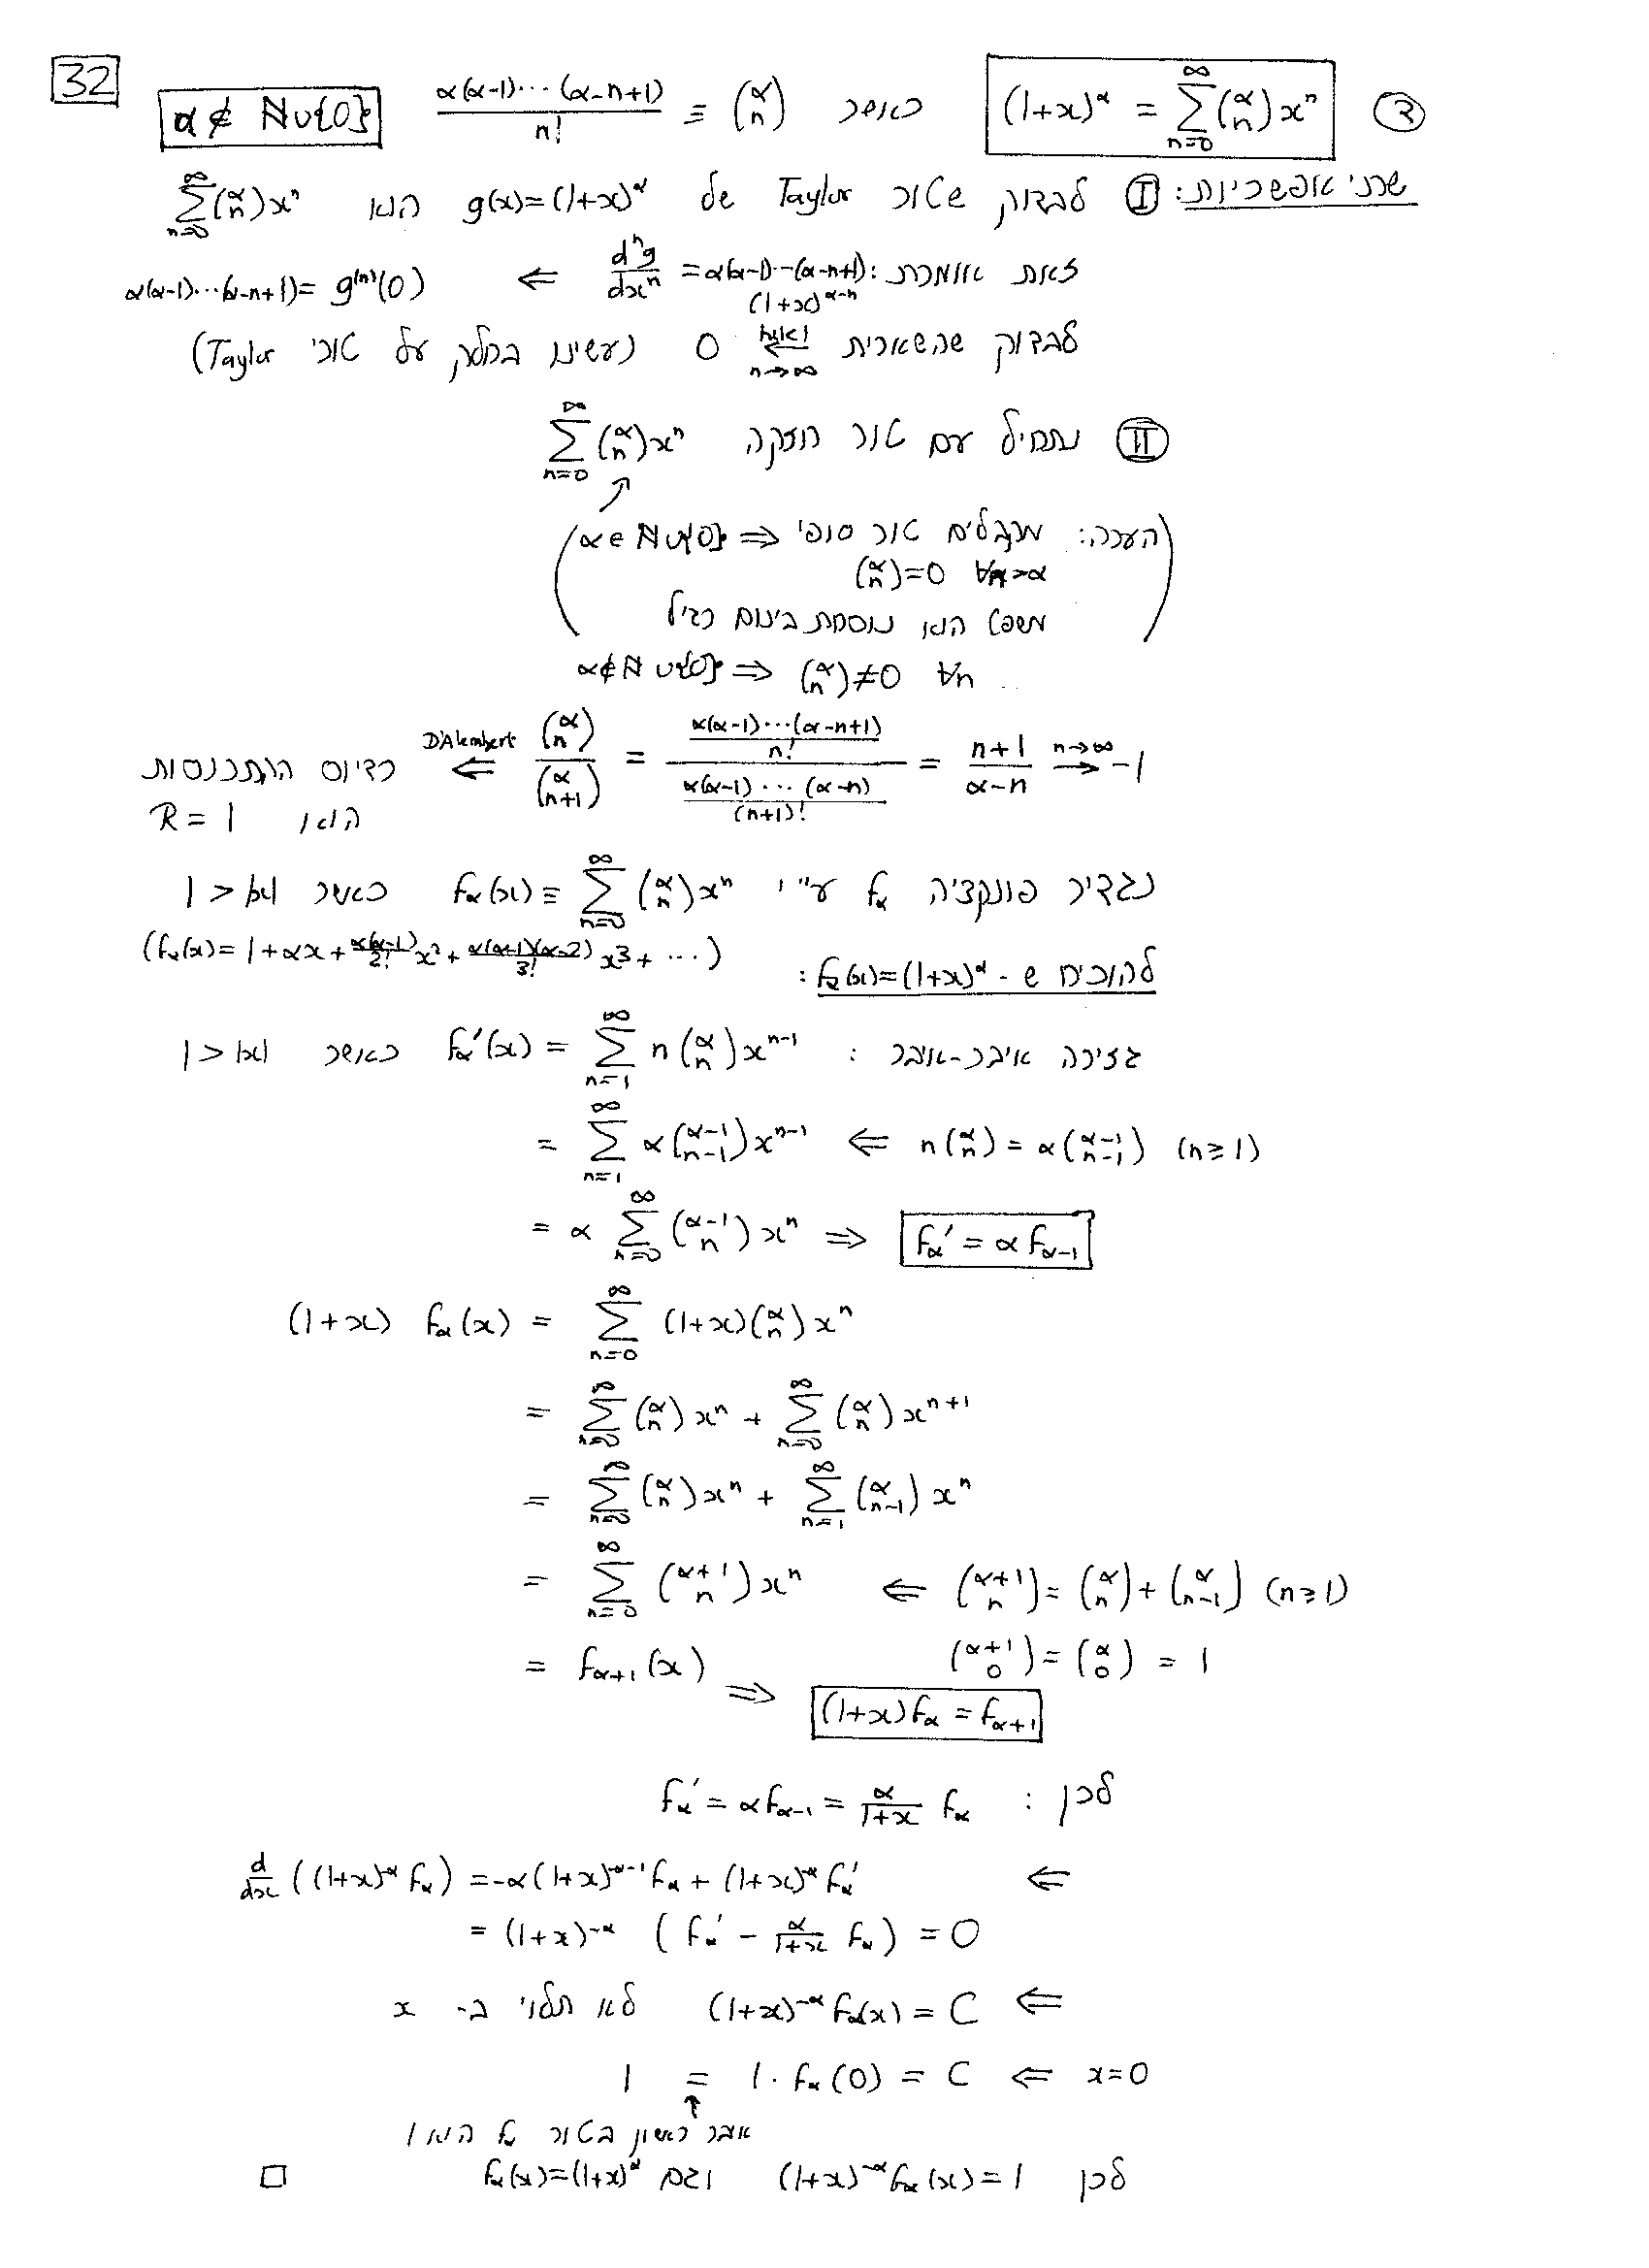 32
③ (1+x)^α = ∑_{n=0}^{∞} (α n) x^n כאשר (α n) ≡ α(α-1)···(α-n+1) / n! α ∉ ℕ∪{0}
שתי אפשריות: Ⓘ לבדוק שטור Taylor של g(x)=(1+x)^α הוא ∑_{n=0}^{∞} (α n) x^n
זאת אומרת: d^n g/dx^n = α(α-1)···(α-n+1)(1+x)^{α-n} ⇐ α(α-1)···(α-n+1) = g^{(n)}(0)
לבדוק שהשארית ⇐_{n→∞} 0 (עשינו בחלק על טורי Taylor)
Ⓘ︎Ⓘ נתחיל עם טור חזקה ∑_{n=0}^{∞} (α n) x^n
↗
(הערה: מקבלים טור סופי ⇐ α ∈ ℕ∪{0}
(α n)=0 ∀n>α
משפט הוא נוסחת בינום רגיל)
α∉ℕ∪{0} ⇒ (α n) ≠ 0 ∀n
(α n)/(α n+1) = [α(α-1)···(α-n+1)/n!] / [α(α-1)···(α-n)/(n+1)!] = (n+1)/(α-n) →^{n→∞} -1
D'Alembert ⇐ רדיוס התכנסות
הוא R = 1
נגדיר פונקציה f_α ע"י f_α(x) ≡ ∑_{n=0}^{∞} (α n) x^n כאשר 1 > |x|
(f_α(x) = 1 + αx + α(α-1)/2! x² + α(α-1)(α-2)/3! x³ + ···)
להוכיח ש- f_α(x)=(1+x)^α :
גזירה איבר-איבר : f_α'(x) = ∑_{n=1}^{∞} n(α n) x^{n-1} כאשר 1 > |x|
= ∑_{n=1}^{∞} α(α-1 n-1) x^{n-1} ⇐ n(α n) = α(α-1 n-1) (n≥1)
= α ∑_{n=0}^{∞} (α-1 n) x^n ⇒ f_α' = α f_{α-1}
(1+x) f_α(x) = ∑_{n=0}^{∞} (1+x)(α n) x^n
= ∑_{n=0}^{∞} (α n) x^n + ∑_{n=0}^{∞} (α n) x^{n+1}
= ∑_{n=0}^{∞} (α n) x^n + ∑_{n=1}^{∞} (α n-1) x^n
= ∑_{n=0}^{∞} (α+1 n) x^n ⇐ (α+1 n) = (α n) + (α n-1) (n≥1)
= f_{α+1}(x) (α+1 0) = (α 0) = 1
⇒ (1+x)f_α = f_{α+1}
לכן : f_α' = αf_{α-1} = α/(1+x) f_α
⇐ d/dx ((1+x)^{-α} f_α) = -α(1+x)^{-α-1} f_α + (1+x)^{-α} f_α'
= (1+x)^{-α} (f_α' - α/(1+x) f_α) = 0
⇐ (1+x)^{-α} f_α(x) = C לא תלוי ב- x
x=0 ⇒ 1 = 1·f_α(0) = C
↑
איבר ראשון בטור f_α הוא 1
לכן (1+x)^{-α} f_α(x) = 1 וגם f_α(x)=(1+x)^α □